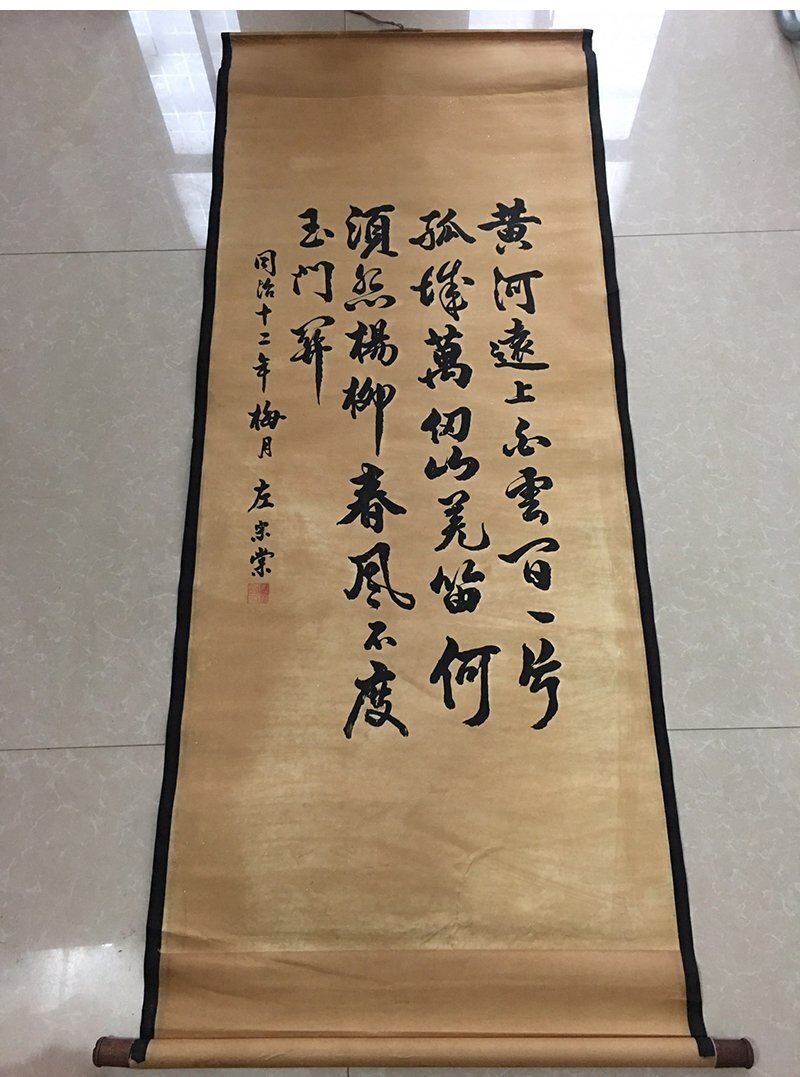 黃河遠上白雲間一片
孤城萬仞山羌笛何
須怨楊柳春風不度
玉門關
同治十二年梅月 左宗棠